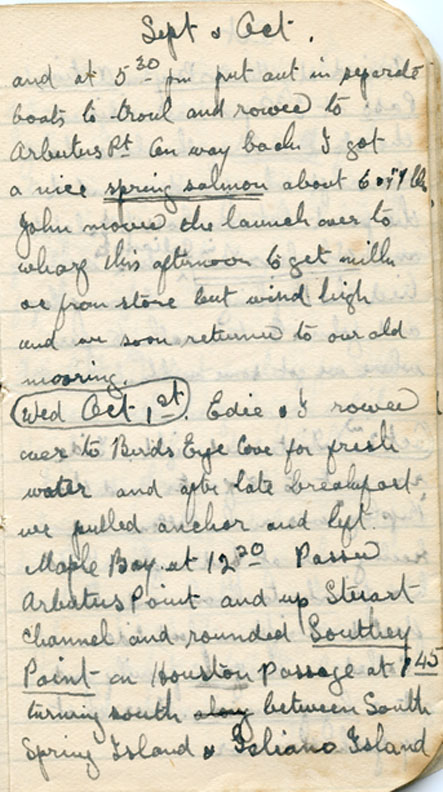 Sept & Oct.
and at 5 30 pm put out in separate
boats to troul and rowed to
Arbutus Pt On way back I got
a nice spring salmon about 6 or 7 lbs
John moved the launch over to
wharf this afternoon to get milk
etc from store but wind high
and we soon returned to our old
mooring.
Wed Oct 1st. Edie & I rowed
over to Birds Eye Cove for fresh
water and after late breakfast
we pulled anchor and left
Maple Bay at 12 20 Passed
Arbutus Point and up Stuart
Channel and rounded Southey
Point on Houston Passage at 1 45
turning south along between South
Spring Island & Galiano Island